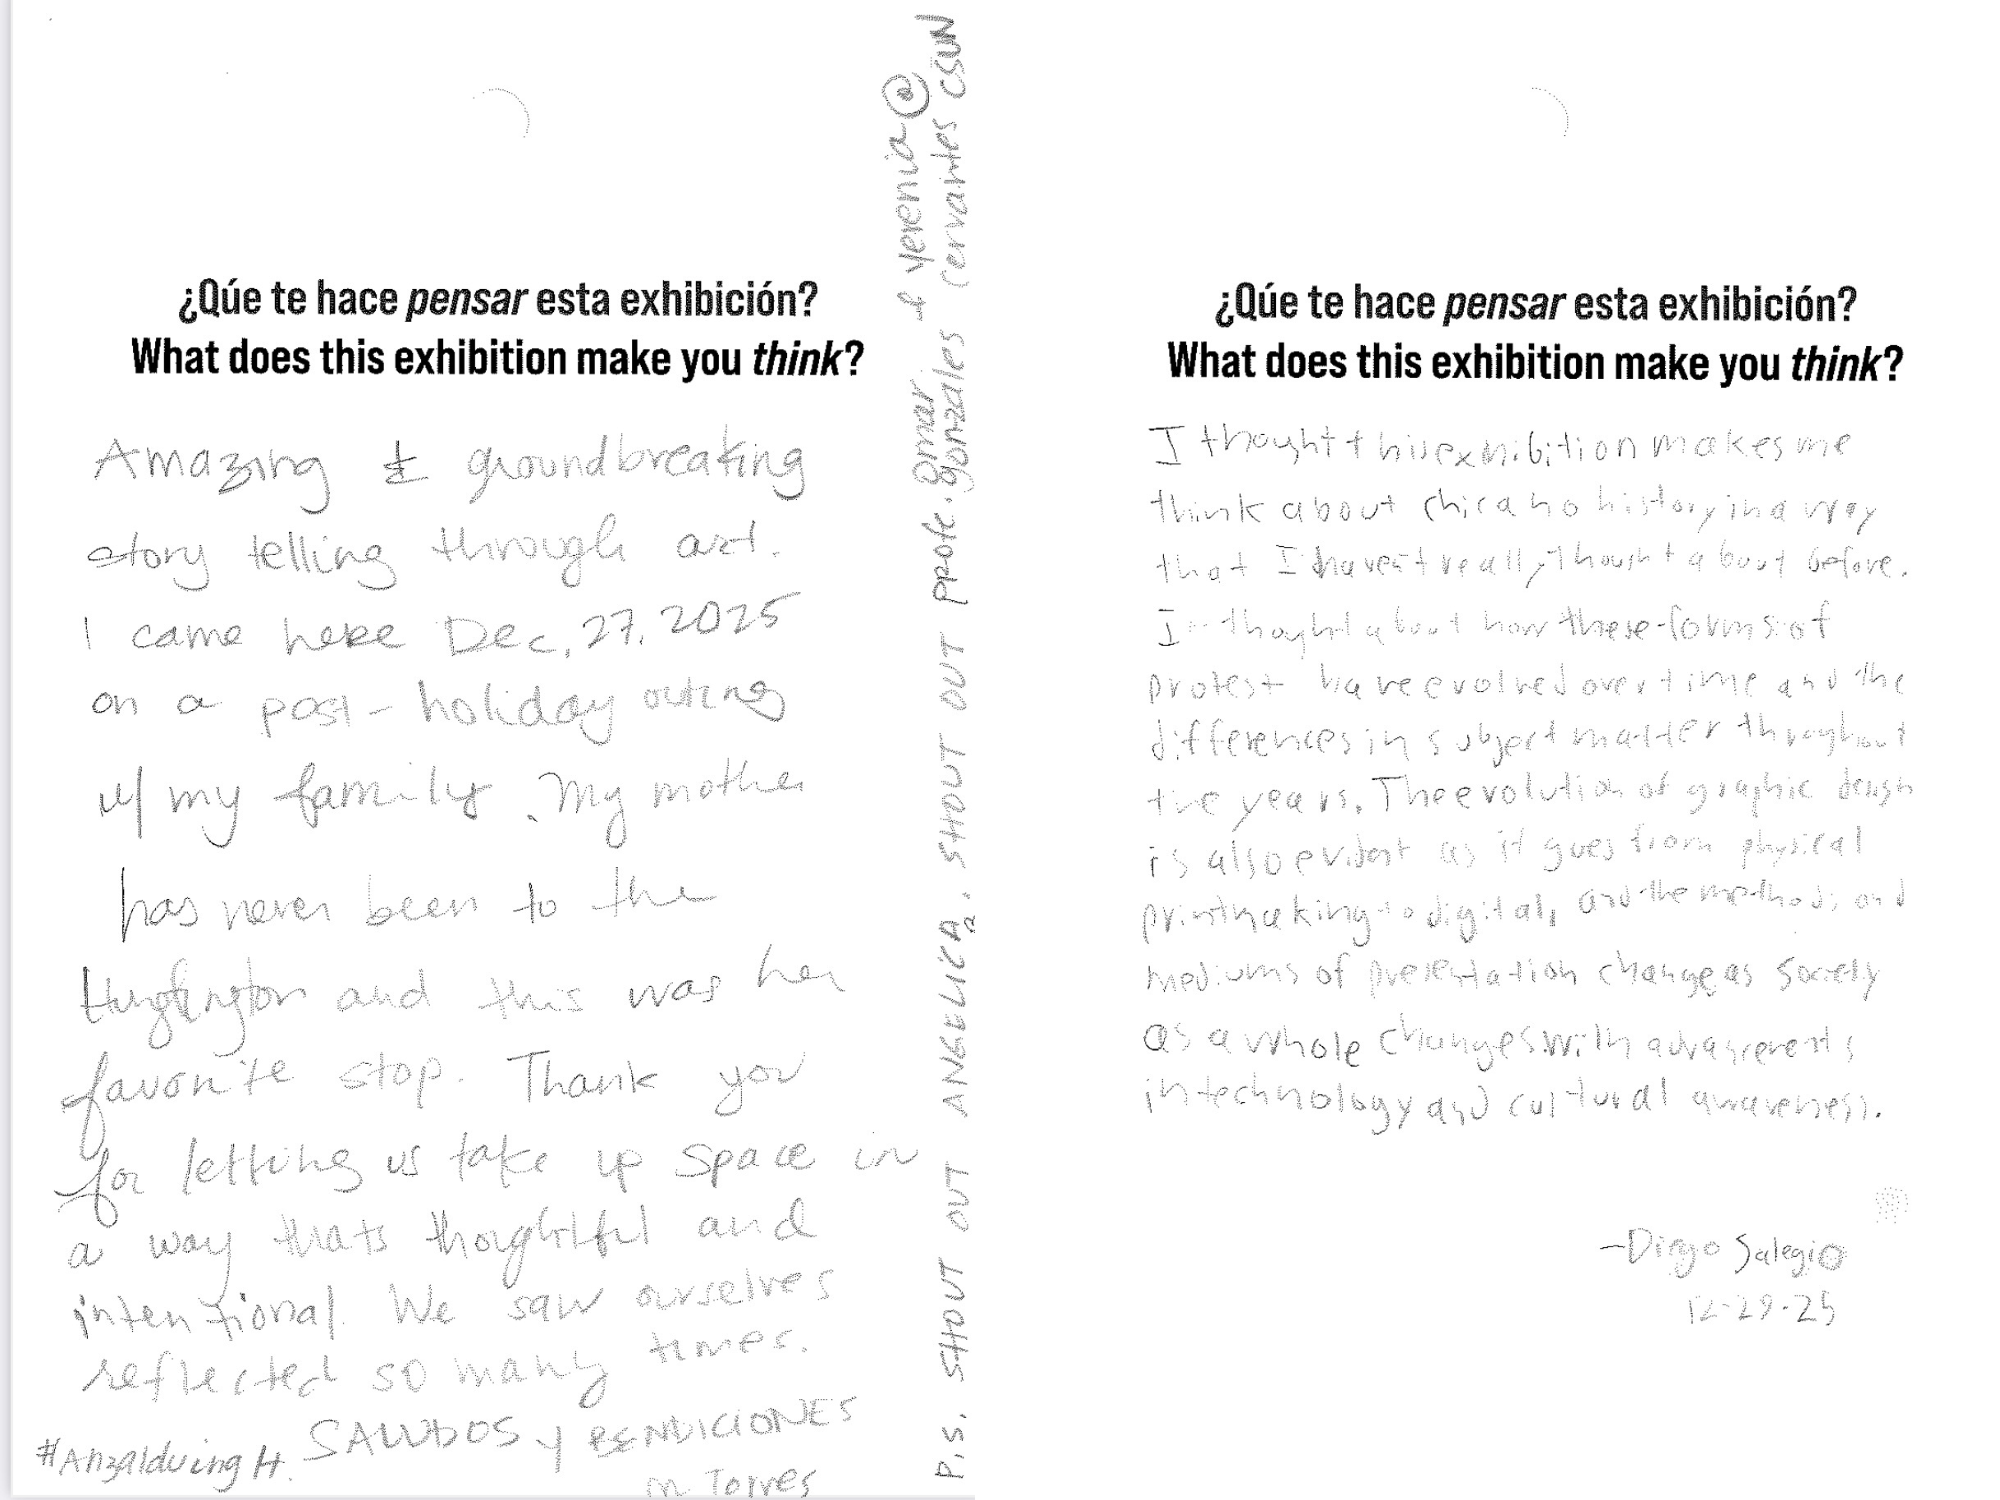 ¿Qúe te hace pensar esta exhibición?
What does this exhibition make you think?
Amazing & groundbreaking
story telling through art.
I came here Dec, 27, 2025
on a post-holiday outing
w/ my family. My mother
has never been to the
Huntington and this was her
favorite stop. Thank you
for letting us take up space in
a way thats thoughtful and
intentional. We saw ourselves
reflected so many times.
SALUDOS y BENDICIONES
#Anzalduing It.
m. Torres
P.S. SHOUT OUT ANGELICA, SHOUT OUT PROFE. Omar gonzales & Yerenia cervantes @ CSUN
¿Qúe te hace pensar esta exhibición?
What does this exhibition make you think?
I thought this exhibition makes me
think about chicano history in a way
that I haven't really thought about before.
I thought about how these forms of
protest have evolved over time and the
differences in subject matter throughout
the years. The evolution of graphic design
is also evident as it goes from physical
printmaking to digital, and the methods and
mediums of presentation change as society
as a whole changes with advancements
in technology and cultural awareness.
-Diego
12-29-25